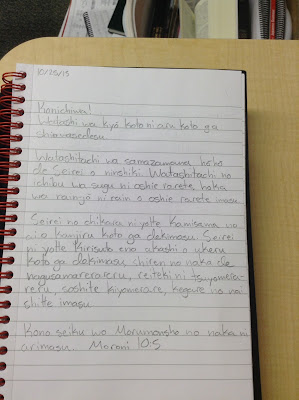 10/25/15
Konichiwa!
Watashi wa kyō koto ni aru koto ga
shiawasedesu.
Watashitachi wa samazamana hōhō
de Seirei o ninshiki. Watashitachi no
ichibu wa sugu ni oshie rarete, hoka
wa raunjo ni eien o oshie rarete imasu.
Seirei no chikara ni yotte Kamisama no
ai o kanjiru koto ga dekimasu. Seirei
ni yotte Kirisuto eno akashi o ukeru
koto ga dekimasu, shiren no naka de
nagusamerareru, reiteki ni tsuyomera-
reru, soshite kiyomerare, kegare no nai
shite imasu
Kono seiku wa Morumonsho no naka ni
arimasu. Moroni 10:5